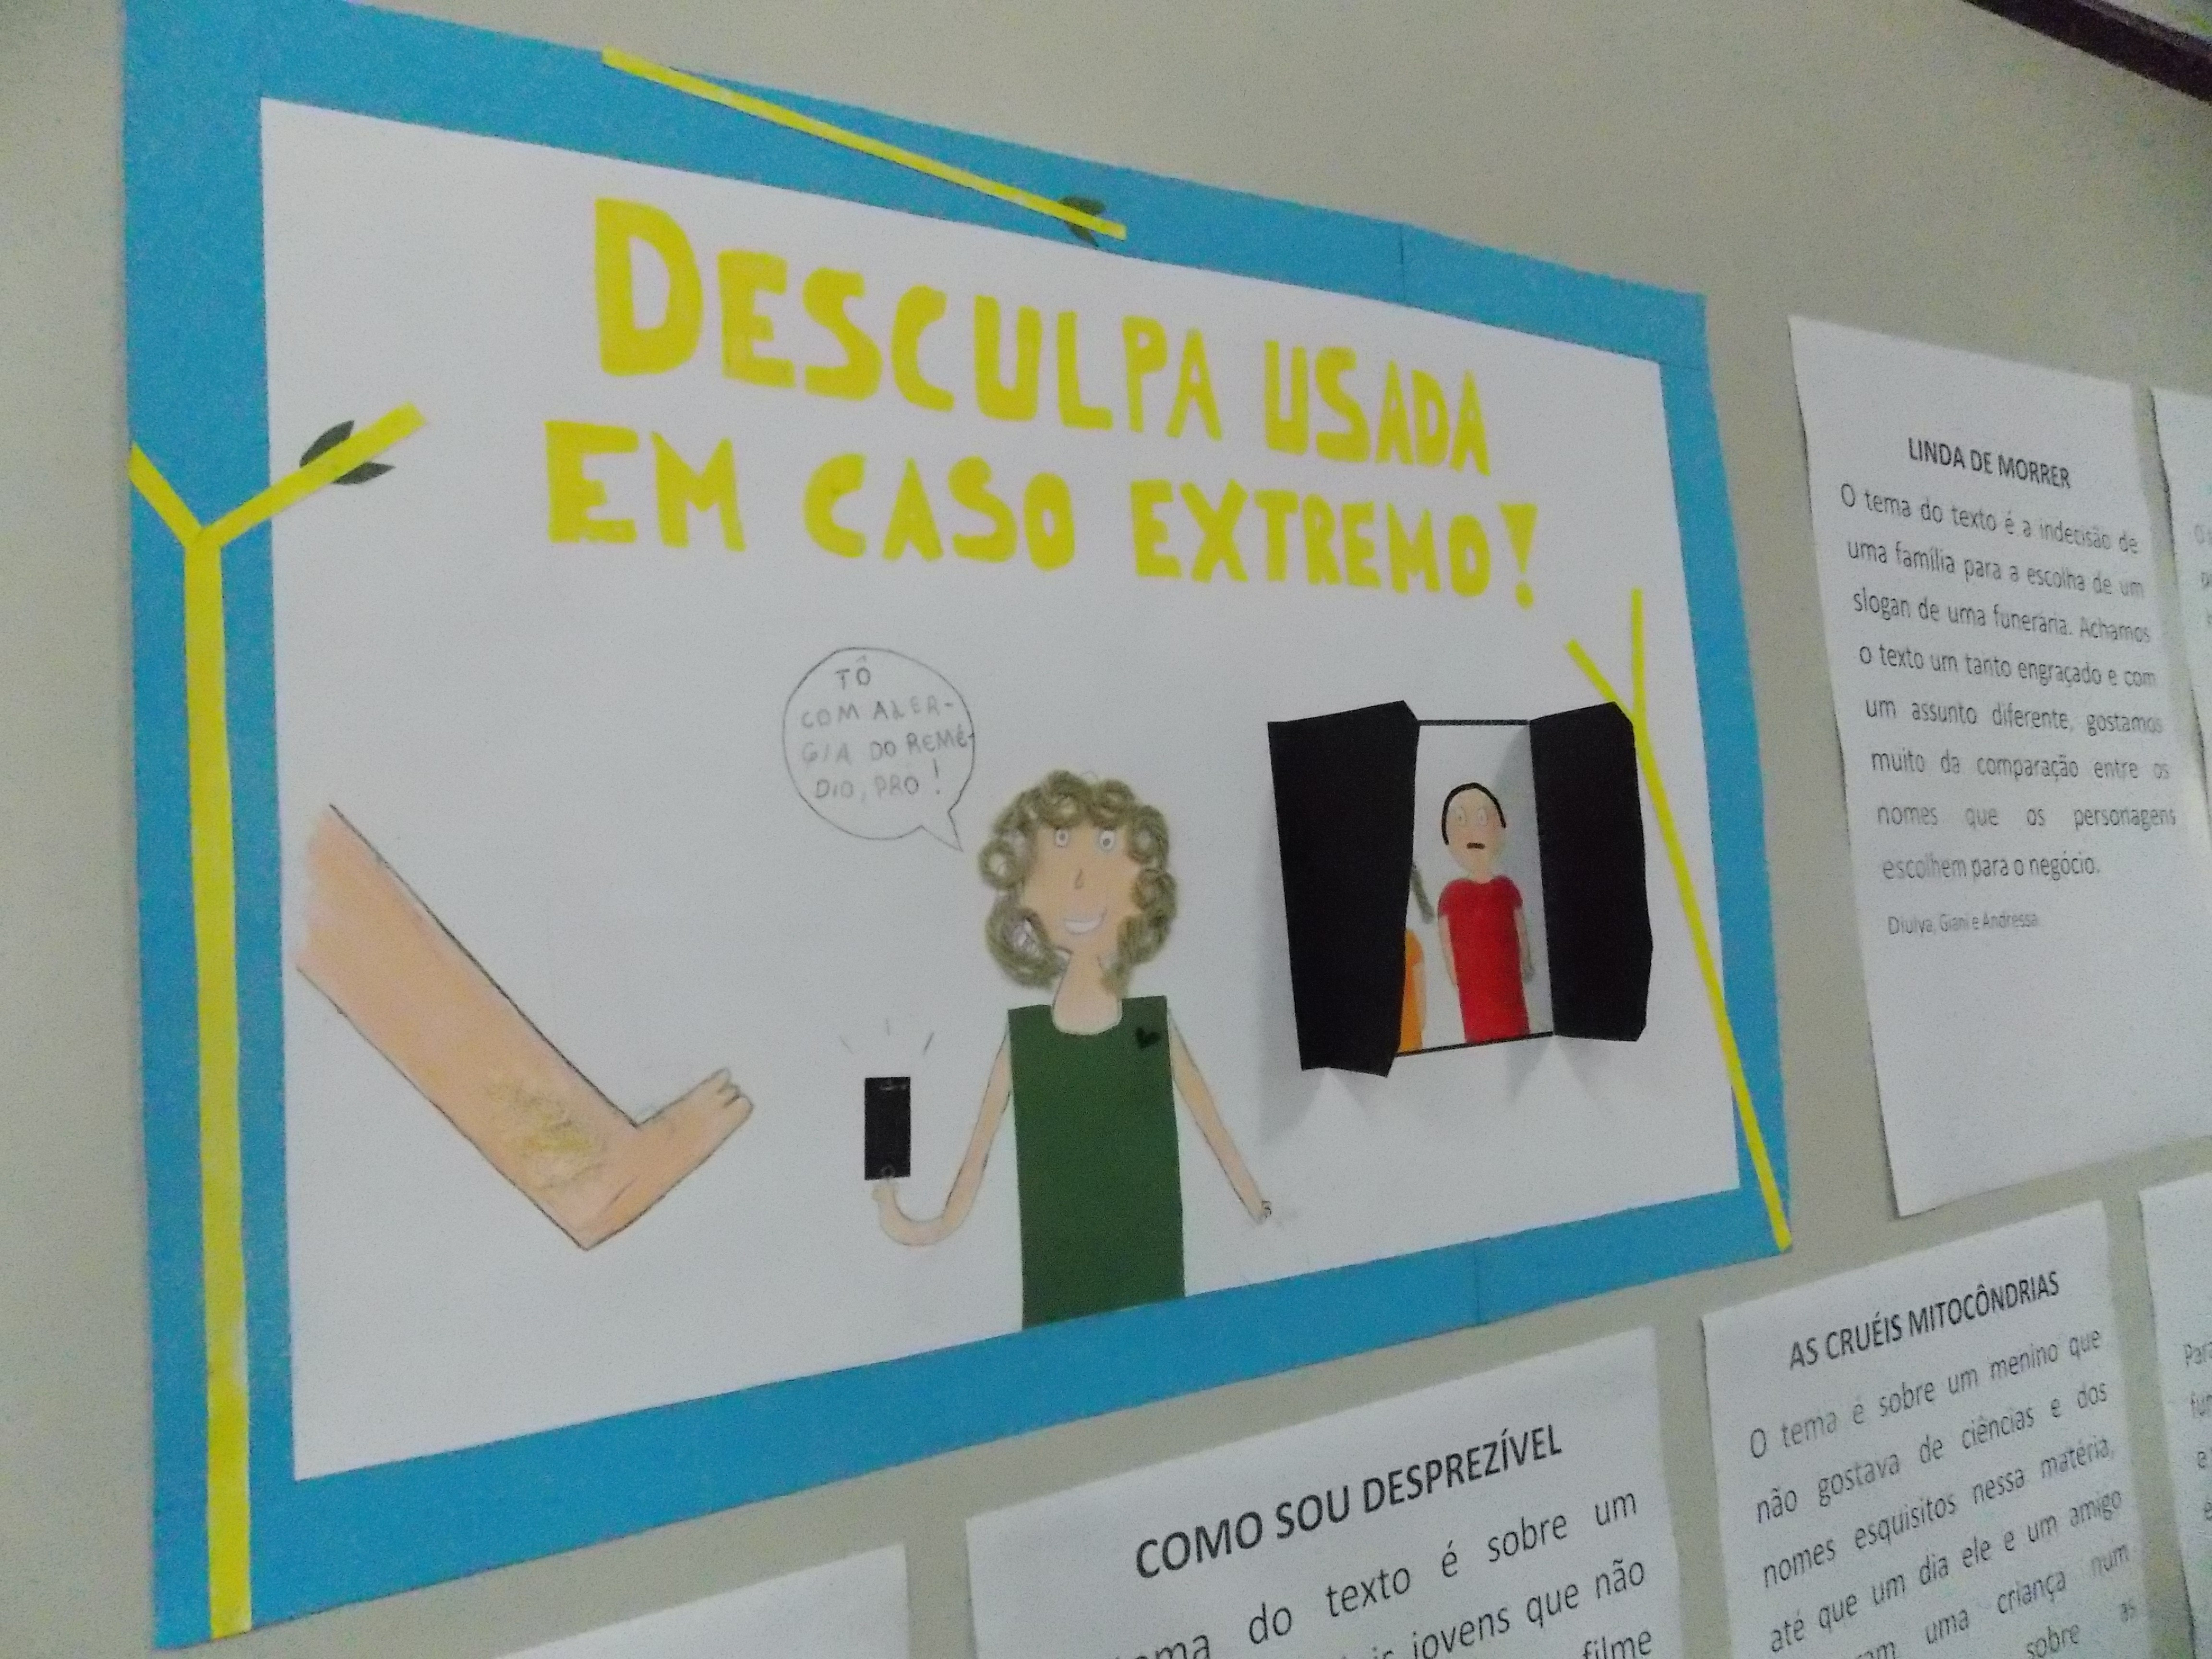 DESCULPA USADA
EM CASO EXTREMO!
TÔ
COM ALER-
GIA DO REMÉ-
DIO, PRÔ!
LINDA DE MORRER
O tema do texto é a indecisão de
uma família para a escolha de um
slogan de uma funerária. Achamos
o texto um tanto engraçado e com
um assunto diferente, gostamos
muito da comparação entre os
nomes que os personagens
escolhem para o negócio.
Diulva, Giani e Andressa
COMO SOU DESPREZÍVEL
do texto é sobre um
jovens que não
filme
AS CRUÉIS MITOCÔNDRIAS
O tema é sobre um menino que
não gostava de ciências e dos
nomes esquisitos nessa matéria,
até que um dia ele e um amigo
uma criança num
sobre as